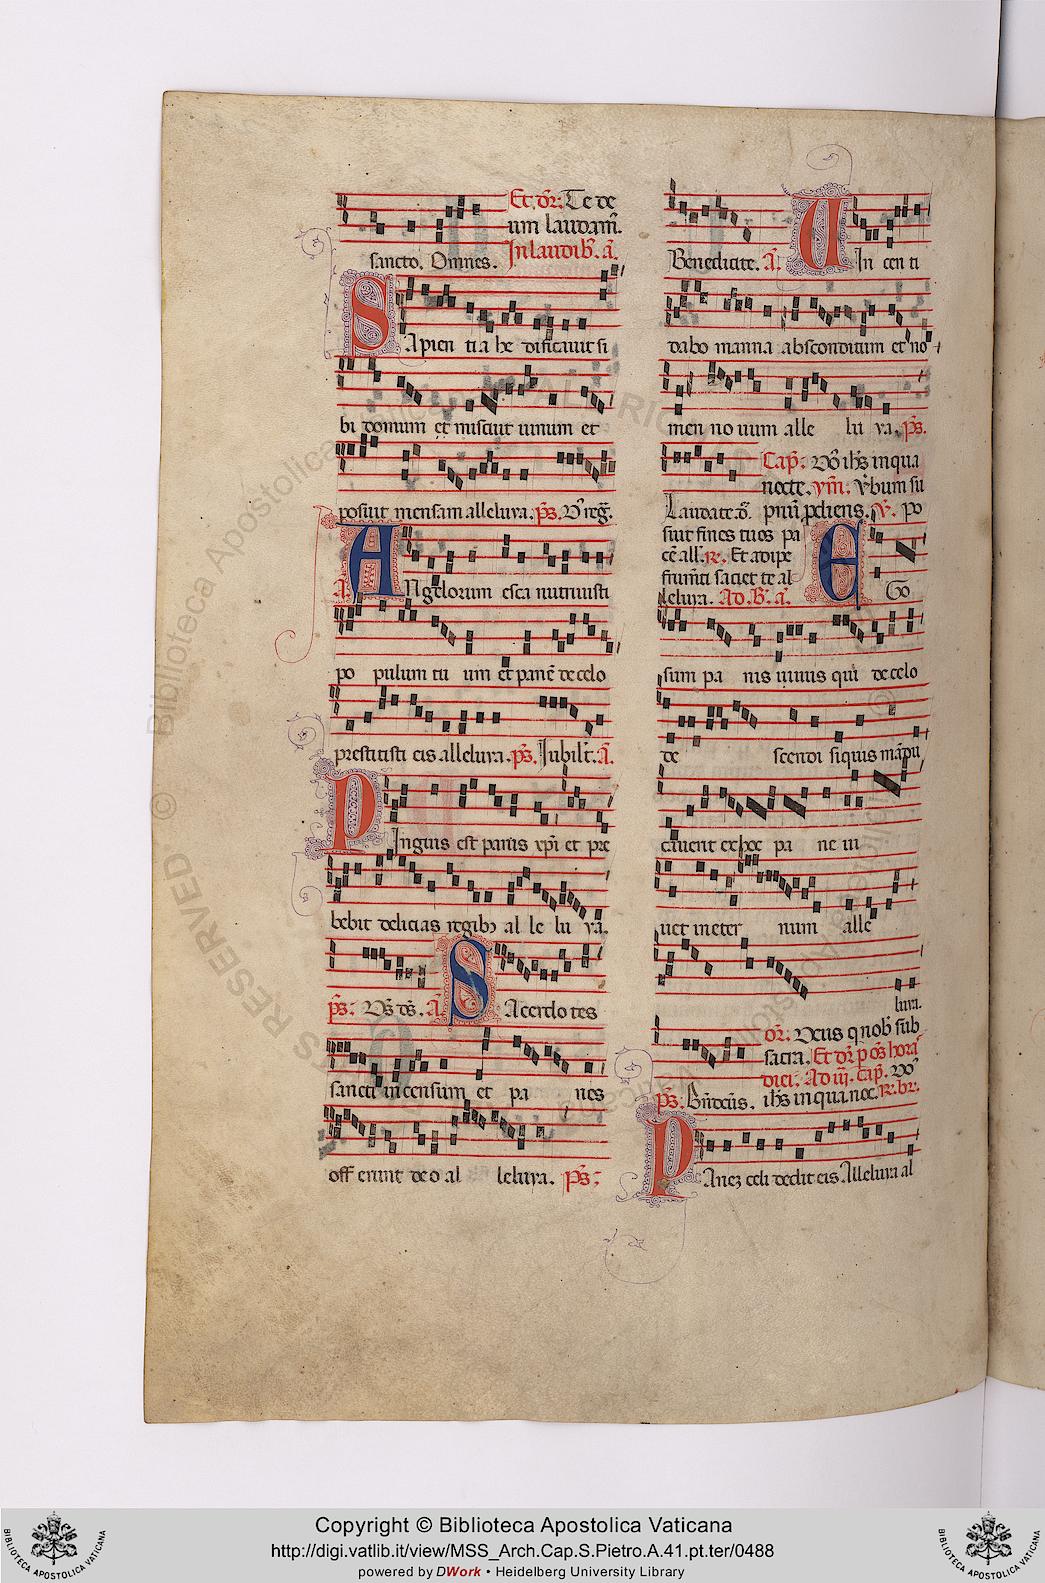 Et dr̄. Te de
um laudam̄.
sancto. Omnes. In laudib᷒. a͞.
SApien tia he dificauit si
bi domum et miscuit uinum et
posuit mensam alleluya. ps̄.
a͞. ANgelorum esca nutriuisti
po pulum tu um et panē de celo
prestitisti eis alleluya. ps̄. Iubil't. A͞.
PInguis est panis xp̄i et pre
bebit delicias regibꝫ al le lu ya.
ps̄. Ds̄ ds̄. A͞. SAcerdo tes
sancti incensum et pa nes
off erunt deo al leluya. ps̄.
Benedicite. A͞. UIn cen ti
dabo manna absconditum et no
men no uum alle lu ya. ps̄.
Cap̄. Dn̄s ih̄s in qua
nocte. ym̄. Vbum su
Laudate. prīū pdiens. V̄. po
suit fines tuos pa
cē all. R̄. Et adipe
frum̄ti saciet te al
leluya. Ad B̄. a͞. EGo
sum pa nis uiuus qui de celo
de scendi si quis mādu
cauerit ex hoc pa ne ui
uet in eter num alle
luya.
or̄. Deus q nob᷒ sub
sacra. Et dr̄ p os̄ hora
diei. Ad iij. cap̄. Dn̄s
ps̄. Bn̄dcūs. ih̄s in qua noc. R̄. br̄.
PAneꝫ celi dedit eis. Alleluya al
Copyright © Biblioteca Apostolica Vaticana
http://digi.vatlib.it/view/MSS_Arch.Cap.S.Pietro.A.41.pt.ter/0488
powered by DWork • Heidelberg University Library
BIBLIOTECA APOSTOLICA VATICANA
BIBLIOTECA APOSTOLICA VATICANA